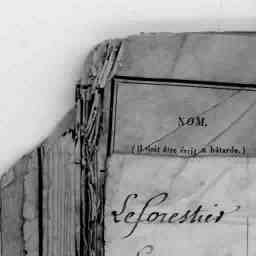 NOM.
(Il doit être écrit en bâtarde.)
Leforestier